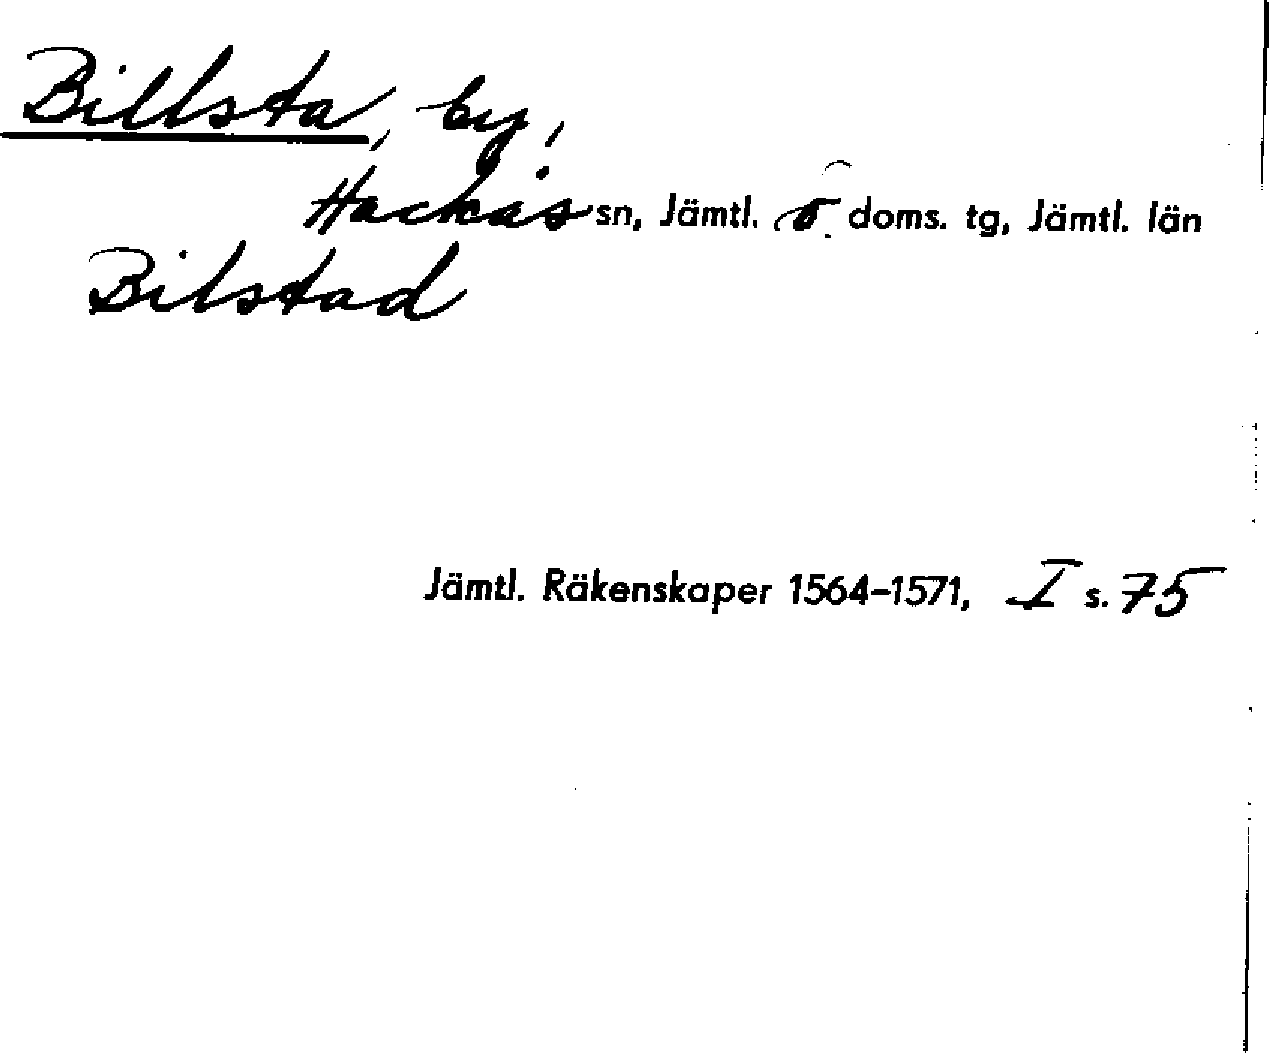 Billsta, by,
Hackås sn, Jämtl. ö. doms. tg, Jämtl. län
Bilstad
Jämtl. Räkenskaper 1564-1571, I s. 75